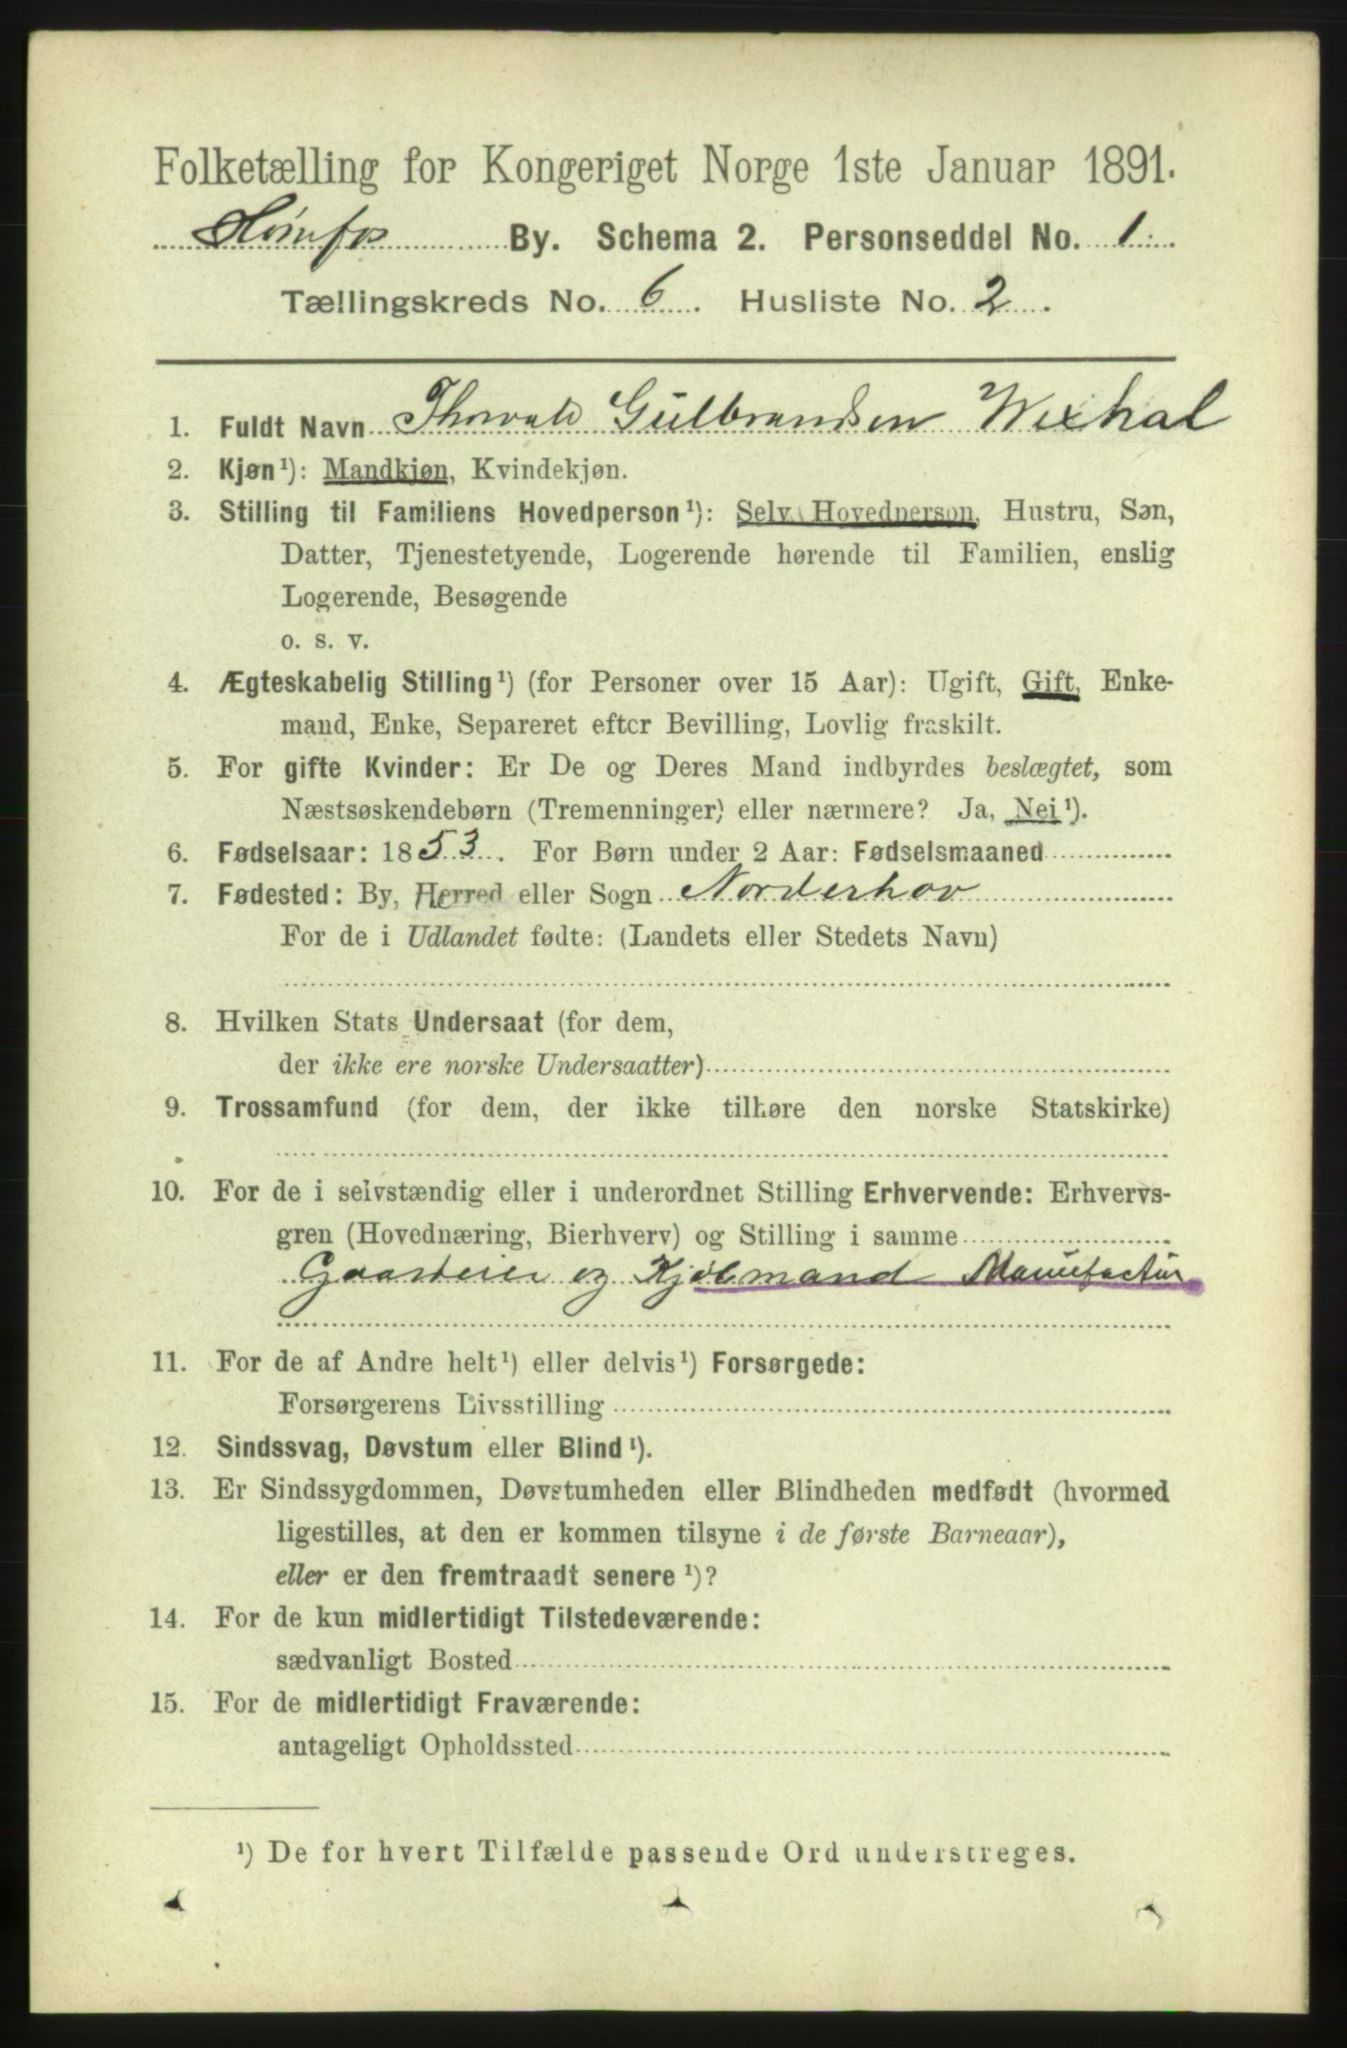 Folketælling for Kongeriget Norge 1ste Januar 1891.
Hønefos By. Schema 2. Personseddel No. 1
Tællingskreds No. 6. Husliste No. 2.
1. Fuldt Navn Thorvald Gulbrandsen Wexhal
2. Kjøn¹): Mandkjøn, Kvindekjøn.
3. Stilling til Familiens Hovedperson¹): Selv Hovedperson, Hustru, Søn,
Datter, Tjenestetyende, Logerende hørende til Familien, enslig
Logerende, Besøgende
o. s. v.
4. Ægteskabelig Stilling¹) (for Personer over 15 Aar): Ugift, Gift, Enke-
mand, Enke, Separeret efter Bevilling, Lovlig fraskilt.
5. For gifte Kvinder: Er De og Deres Mand indbyrdes beslægtet, som
Næstsøskendebørn (Tremenninger) eller nærmere? Ja, Nei¹).
6. Fødselsaar: 1853. For Børn under 2 Aar: Fødselsmaaned
7. Fødested: By, Herred eller Sogn Norderhov
For de i Udlandet fødte: (Landets eller Stedets Navn)
8. Hvilken Stats Undersaat (for dem,
der ikke ere norske Undersaatter)
9. Trossamfund (for dem, der ikke tilhøre den norske Statskirke)
10. For de i selvstændig eller i underordnet Stilling Erhvervende: Erhvervs-
gren (Hovednæring, Bierhverv) og Stilling i samme
Gaardeier og Kjøbmand Manufactur
11. For de af Andre helt¹) eller delvis¹) Forsørgede:
Forsørgerens Livsstilling
12. Sindssvag, Døvstum eller Blind¹).
13. Er Sindssygdommen, Døvstumheden eller Blindheden medfødt (hvormed
ligestilles, at den er kommen tilsyne i de første Barneaar),
eller er den fremtraadt senere¹)?
14. For de kun midlertidigt Tilstedeværende:
sædvanligt Bosted
15. For de midlertidigt Fraværende:
antageligt Opholdssted
¹) De for hvert Tilfælde passende Ord understreges.